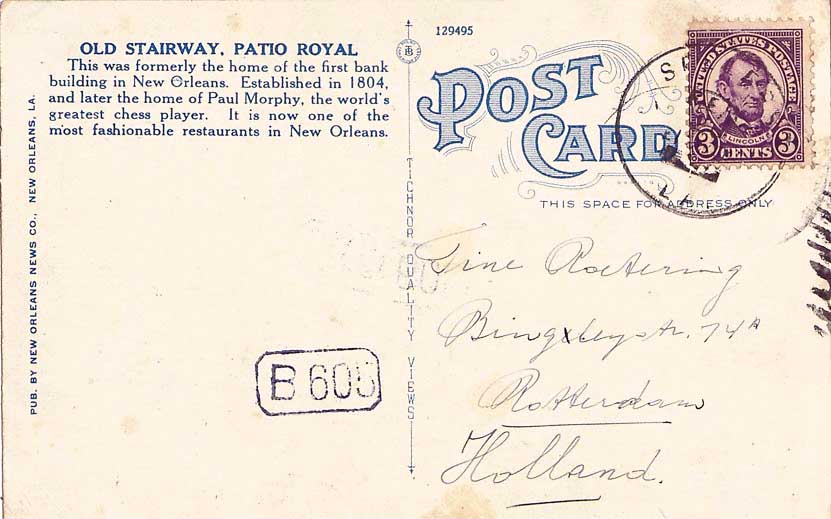 OLD STAIRWAY, PATIO ROYAL
This was formerly the home of the first bank
building in New Orleans. Established in 1804,
and later the home of Paul Morphy, the world's
greatest chess player. It is now one of the
most fashionable restaurants in New Orleans.
PUB. BY NEW ORLEANS NEWS CO., NEW ORLEANS, LA.
B 605
TICHNOR QUALITY VIEWS
129495
POST
CARD
THIS SPACE FOR ADDRESS ONLY
UNITED STATES POSTAGE
LINCOLN
3 CENTS 3
LA.
Tine Roetering
Rotterdam
Holland.